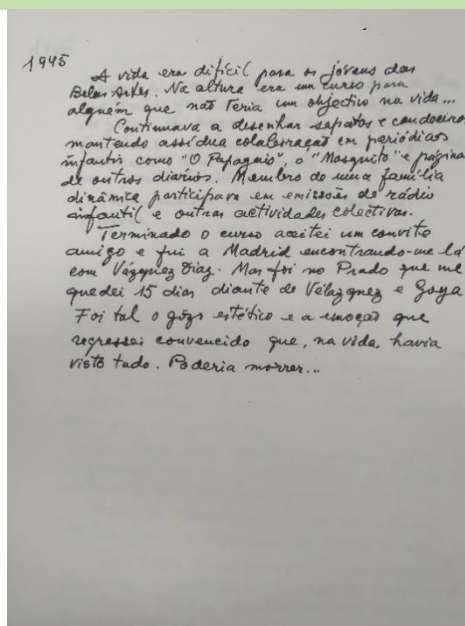 1945
A vida era difícil para os jóvens das
Belas Artes. Na altura era um curso para
alguém que não teria um objectivo na vida...
Continuava a desenhar sapatos e candeeiros
mantendo assídua colaboração em periódicos
infantis como "O Papagaio", o "Mosquito" e páginas
de outros diarios. Membro de uma família
dinâmica participava em emissões de rádio
infantil e outras actividades colectivas.
Terminado o curso aceitei um convite
amigo e fui a Madrid encontrando-me lá
com Vázquez Diaz. Mas foi no Prado que me
quedei 15 dias diante de Vélazquez e Goya
Foi tal o gôzo estético e a emoção que
regressei convencido que, na vida, havia
visto tudo. Poderia morrer...